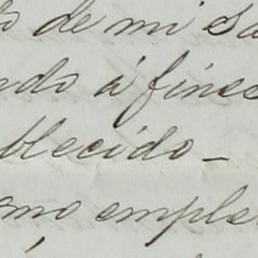 o de mi sa
ndo á fines
blecido_
omo emple